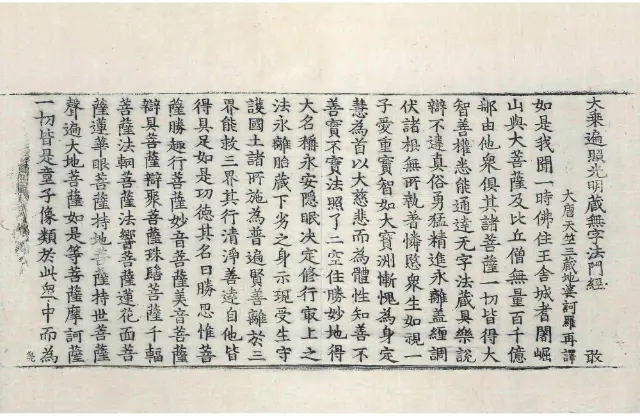 大乘遍照光明藏無字法門經
大唐天竺三藏地婆訶羅再譯 敢
如是我聞一時佛住王舍城耆闍崛
山與大菩薩及比丘僧無量百千億
那由他衆俱其諸菩薩一切皆得大
智善權悉能通達无字法藏具樂説
辯不違真俗勇猛精進永離蓋纏調
伏諸根無所執著憐愍衆生如視一
子愛重寶智如大寶洲慚愧為身定
慧為首以大慈悲而為體性知善不
善實不實法照了二空住勝妙地得
大名稱永安隱眠決定修行㝡上之
法永離胎藏下劣之身示現受生守
護國土諸所施為普遍賢善離於三
界能救三界其行清淨善達自他皆
得具足如是功德其名曰勝思惟菩
薩勝趣行菩薩妙音菩薩美音菩薩
辯具菩薩辯聚菩薩珠髻菩薩千輻
菩薩法輞菩薩法響菩薩蓮花面菩
薩蓮華眼菩薩持地菩薩持世菩薩
聲遍大地菩薩如是等菩薩摩訶薩
一切皆是童子像類於此衆中而為